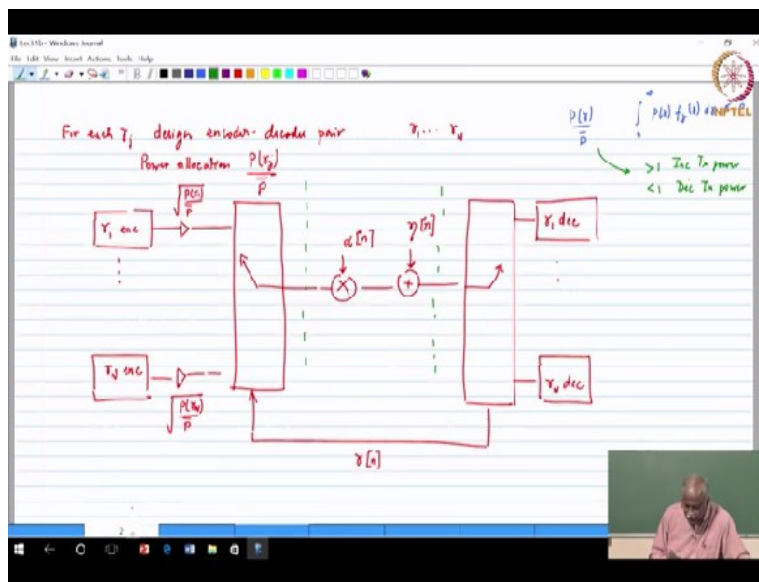 Lec31b - Windows Journal
File Edit View Insert Actions Tools Help
For each γj design encoder-decoder pair γ1 ... γN
Power allocation P(γj)/P̄
P(γ)/P̄
P(γ) fγ(γ)
NPTEL
>1 Inc Tx power
<1 Dec Tx power
γ1 enc
√P(γ1)/P̄
α[n]
η[n]
γ1 dec
γN enc
√P(γN)/P̄
γN dec
γ[n]
2